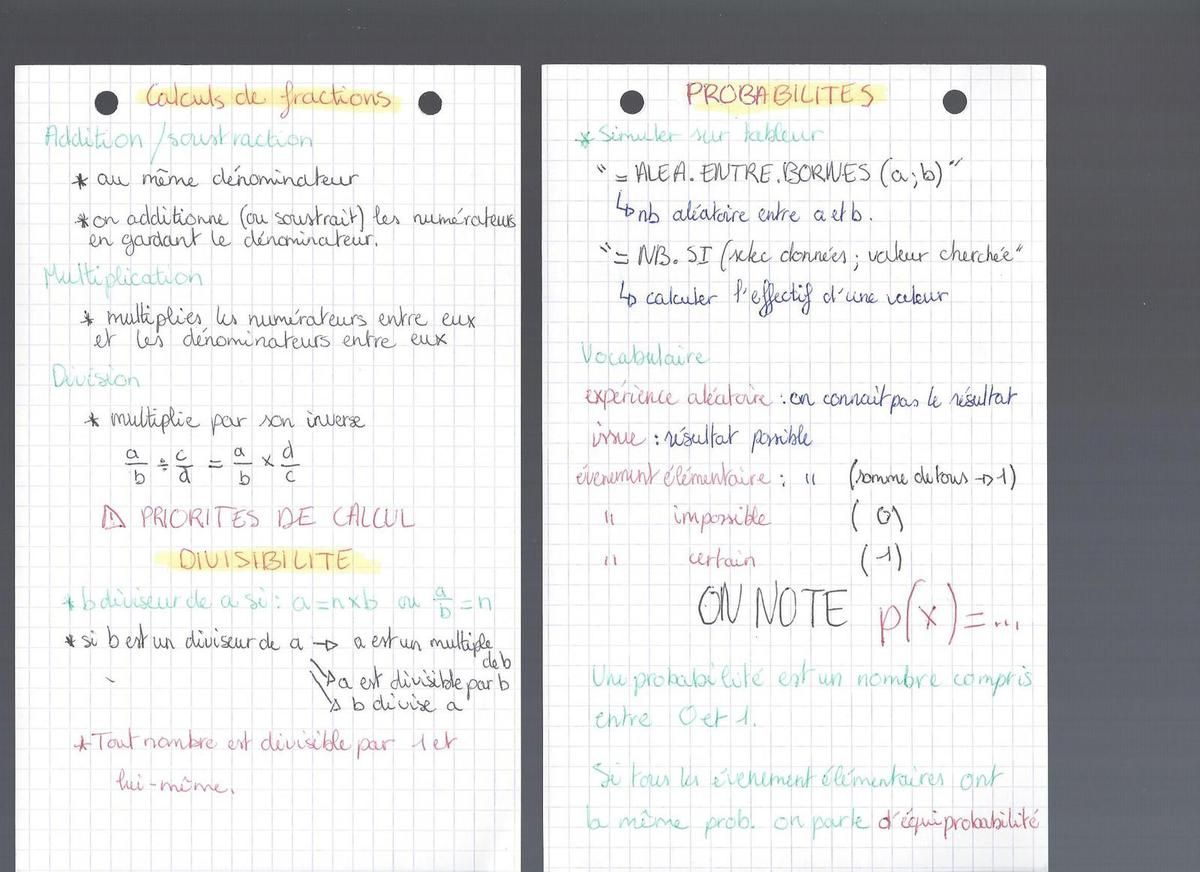 Calculs de fractions
Addition/soustraction
* au même dénominateur
* on additionne (ou soustrait) les numérateurs
en gardant le dénominateur.
Multiplication
* multiplies les numérateurs entre eux
et les dénominateurs entre eux
Division
* multiplie par son inverse
a/b ÷ c/d = a/b × d/c
⚠ PRIORITES DE CALCUL
DIVISIBILITE
* b diviseur de a si : a=n×b ou a/b=n
* si b est un diviseur de a → a est un multiple
de b
↘ a est divisible par b
↘ b divise a
* Tout nombre est divisible par 1 et
lui-même.
PROBABILITES
* Simuler sur tableur
"=ALEA.ENTRE.BORNES (a;b)"
↳ nb aléatoire entre a et b.
"=NB.SI (selec données ; valeur cherchée"
↳ calculer l'effectif d'une valeur
Vocabulaire
expérience aléatoire : on connait pas le résultat
issue : résultat possible
évenement élémentaire : " (somme de tous → 1)
" impossible (0)
" certain (1)
ON NOTE p(x)=...
Une probabilité est un nombre compris
entre 0 et 1.
Si tous les évenement élémentaires ont
la même prob. on parle d'équiprobabilité